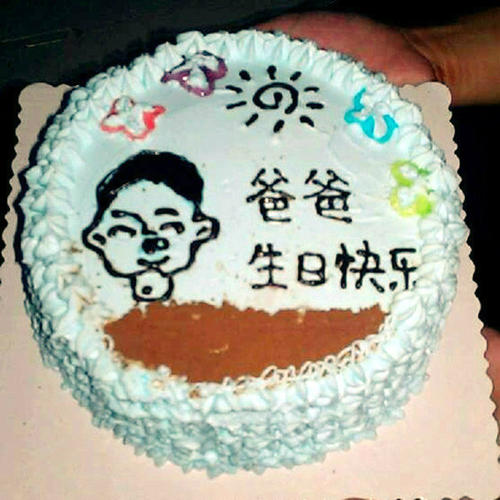 爸爸
生日快乐